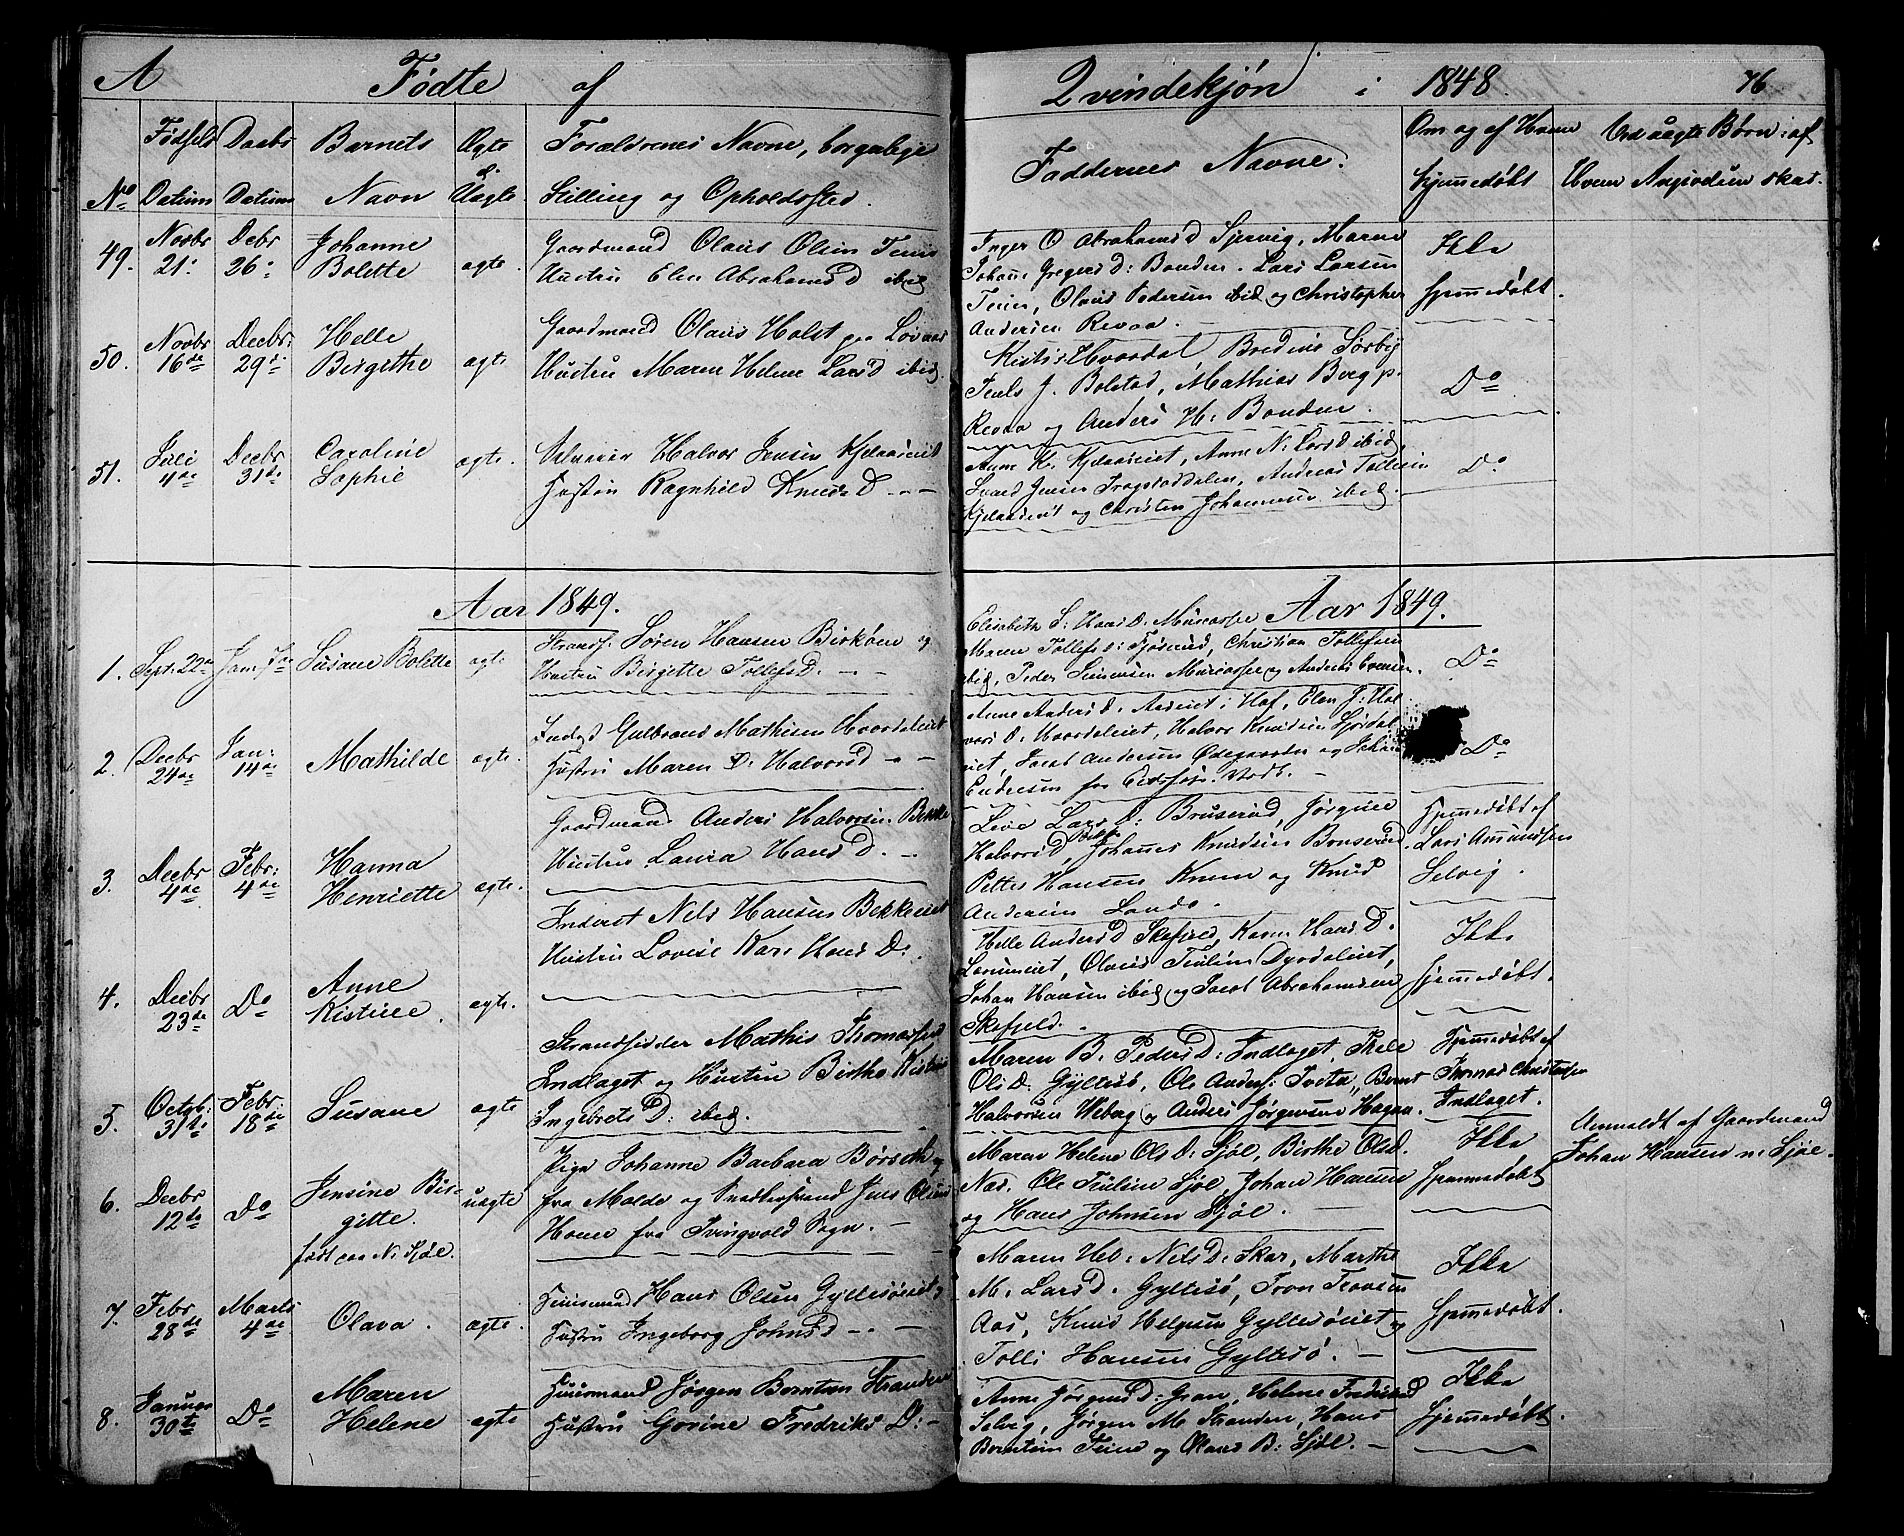 A Fødte af Qvindekjøn i 1848. 76
No
Fødsels Datum
Daabs Datum
Barnets Navn
Ægte el. Uægte
Forældrenes Navne, borgerlige
Stilling og Opholdssted.
Faddernes Navne.
Om og af Hvem
hjemmedøbt
Ved uægte Børn: af
Hvem Angivelsen skat.
49. Novbr 21. Decbr 26. Johanne Bolette ægte.
Gaardmand Olaus Olsen Teien
Hustru Elen AbrahamsD ibid
Inger O AbrahamsD Sjervig, Maren
Johane GregersD: Bonden. Lars Larsen
Teien, Olaus Pedersen ibid og Christopher
Andersen Revaa.
Ikke hjemmedøbt.
50. Novbr 16de Decbr: 29de Helle Birgithe ægte
Gaardmand Olaus Holst paa
Hustru Maren Helene LarsD ibid.
Hvordal Bredine Sørby
J. Bolstad, Mathias Berg p.
Revaa og Anders H: Bonden.
Do
51. Juli 4de Decbr 31de Caroline Sophie ægte.
Halvor Jensen
Hustru Ragnhild KnudsD
Anne K. Anne N. LarsD ibid
Jensen Andreas Tollefsen
og Christen Johannesen ibid
Do
Aar 1849. Aar 1849.
1. Sept. 22de Jan. 7de Susane Bolette ægte
Strands. Søren Hansen Birkøen og
Hustru Birgitte TollefsD.
Elisabeth S. HansD.
Maren TollefsD: Christian Tollefsen
ibid, Peder Simensen og Anders Evensen.
Do
2. Decbr 24de Jan: 14de Mathilde ægte.
Inds Gulbrand Mathisen Hvordaleiet
Hustru Maren D. HalvorsD
Anne AndersD. i Hof, Elen J: Hal
vorsD. Hvordaleiet, Halvor Knudsen
Jacob Andersen Ødegaarden og Johan
Endresen fra
Do
3. Decbr 4de Febr: 4de Hanna Henriette ægte.
Gaardmand Anders Halvorsen Bekke
Hustru Laura HansD.
Live LarsD: Bruserud, Jørgine
HalvorsD Bekke, Johannes Knudsen Bruserud
Petter Hansen Knem og Knud
Andersen Lande.
Hjemmedøbt af
Lars Amundsen
Selvig.
4. Decbr 23de Do Anne Kistine ægte.
Inderst Nels Hansen Bekkeeiet
Hustru Lovise Kar. HansD.
Helle AndersD Skafjeld, Karen HansD.
Olaus Dyrdaleiet,
Johan Hansen ibid og Jacob Abrahamsen
Skafjeld.
Ikke
hjemmedøbt.
5. Octob: 31te Febr 18de Susane ægte
Strandsidder Mathis Thomassen
Indlaget og Hustru Birthe Kistine
IngebretsD: ibid
Maren B. PedersD: Indlaget,
OlsD: Gyltesø, Ole Anders: Tveta, Bernt
Halvorsen Weberg og Anders Jørgensen Hagen.
Hjemmedøbt af
Thomas Christensen
Indlaget.
6. Decbr 12te Do Jensine Bir-
gitte.
født paa N. Sjøl. uægte
Pige Johanne Barbara Børseth
fra Molde og Jens Olsen
fra Tvingvold Sogn.
Maren Helene OlsD: Sjøl, Birthe OlsD.
Næs. Ole Sjøl, Johan Hansen
og Hans Johnsen Sjøl.
Ikke
hjemmedøbt
Anmeldt af Gaardmand
Johan Hansen n: Sjøl.
7. Febr 28de Marts 4de Olava. ægte.
Huusmand Hans Olsen Gyltesøeiet,
Hustru Ingeborg JohnsD
Maren Hel: NelsD: Skar, Marthe
M. LarsD. Gyltesø, Tron Tronsen
Aas, Knud Helgesen Gyltesøeiet og
Tolli Hansen Gyltesø.
Ikke
hjemmedøbt.
8. Januar 30te Do Maren Helene ægte
Huusmand Jørgen Berntsen Stranden
Hustru Govine FredriksD:
Anne JørgensD: Gran, Helene FredriksD
Selvig, Jørgen M. Stranden, Hans
Berntsen Teien og Olaus B: Sjøl.
Ikke
hjemmedøbt.